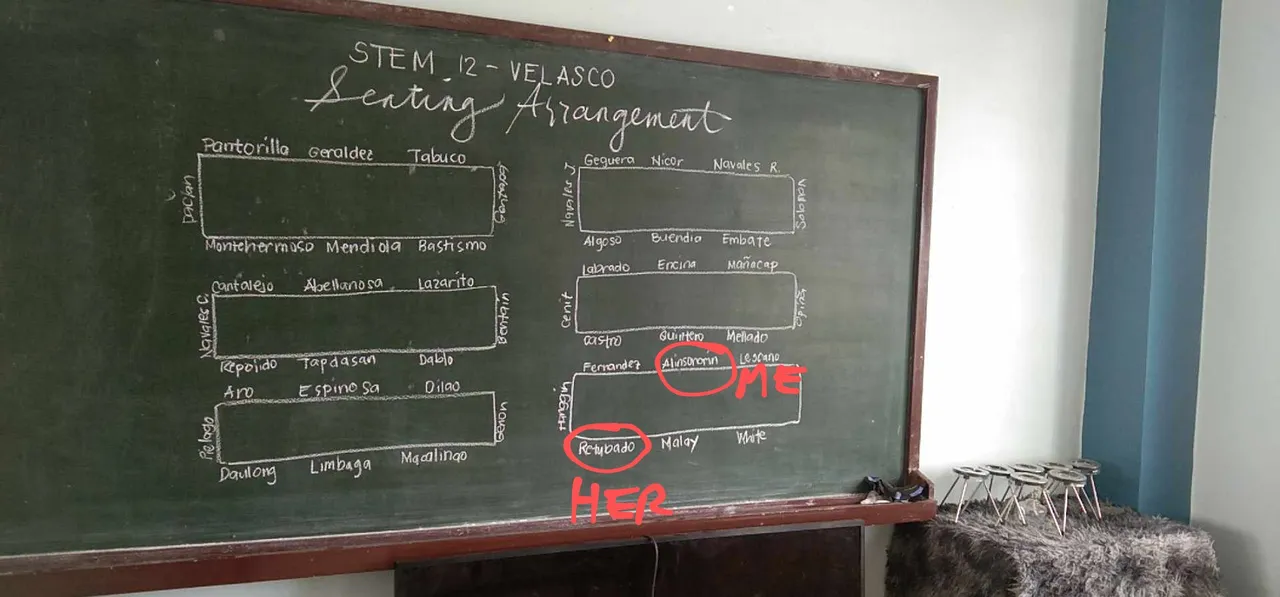 STEM 12 - VELASCO
Seating Arrangement
Pantorilla Geraldez Tabuco
Montehermoso Mendiola Bastismo
Cantalejo Abellanosa Lazarito
Navales C.
Repojido Tapdasan Dablo
Aro Espinosa Dilao
Pielago
Daulong Limbaga Macalingo
Gequera Nicor Navales R.
Navales J
Solamo
Algoso Buendia Embate
Labrado Encina Mañacap
Cenit
Castro Quintero Mellado
Fernandez Alinsonorin Lescano
ME
Retubado Malay White
HER